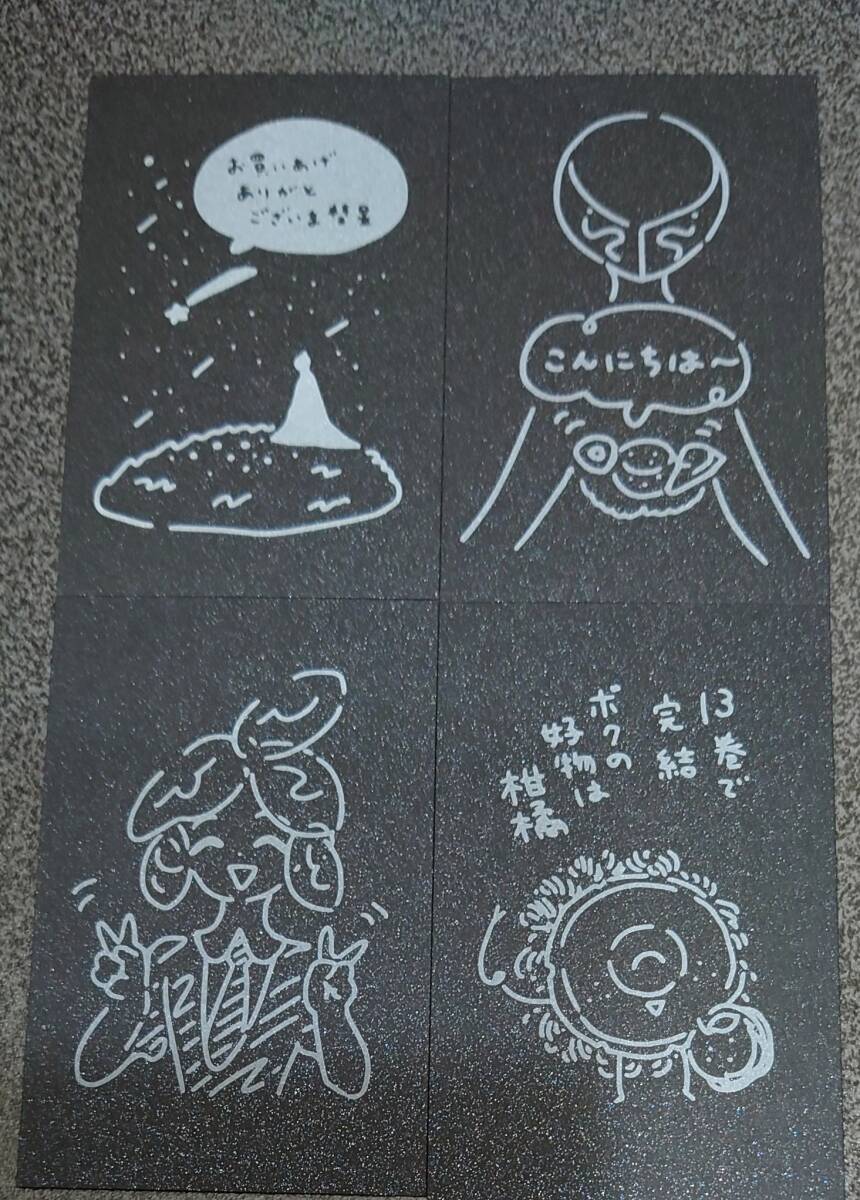 お買いあげ
ありがと
ございま彗星
こんにちは〜
13巻で
完結
ボクの
好物は
柑橘